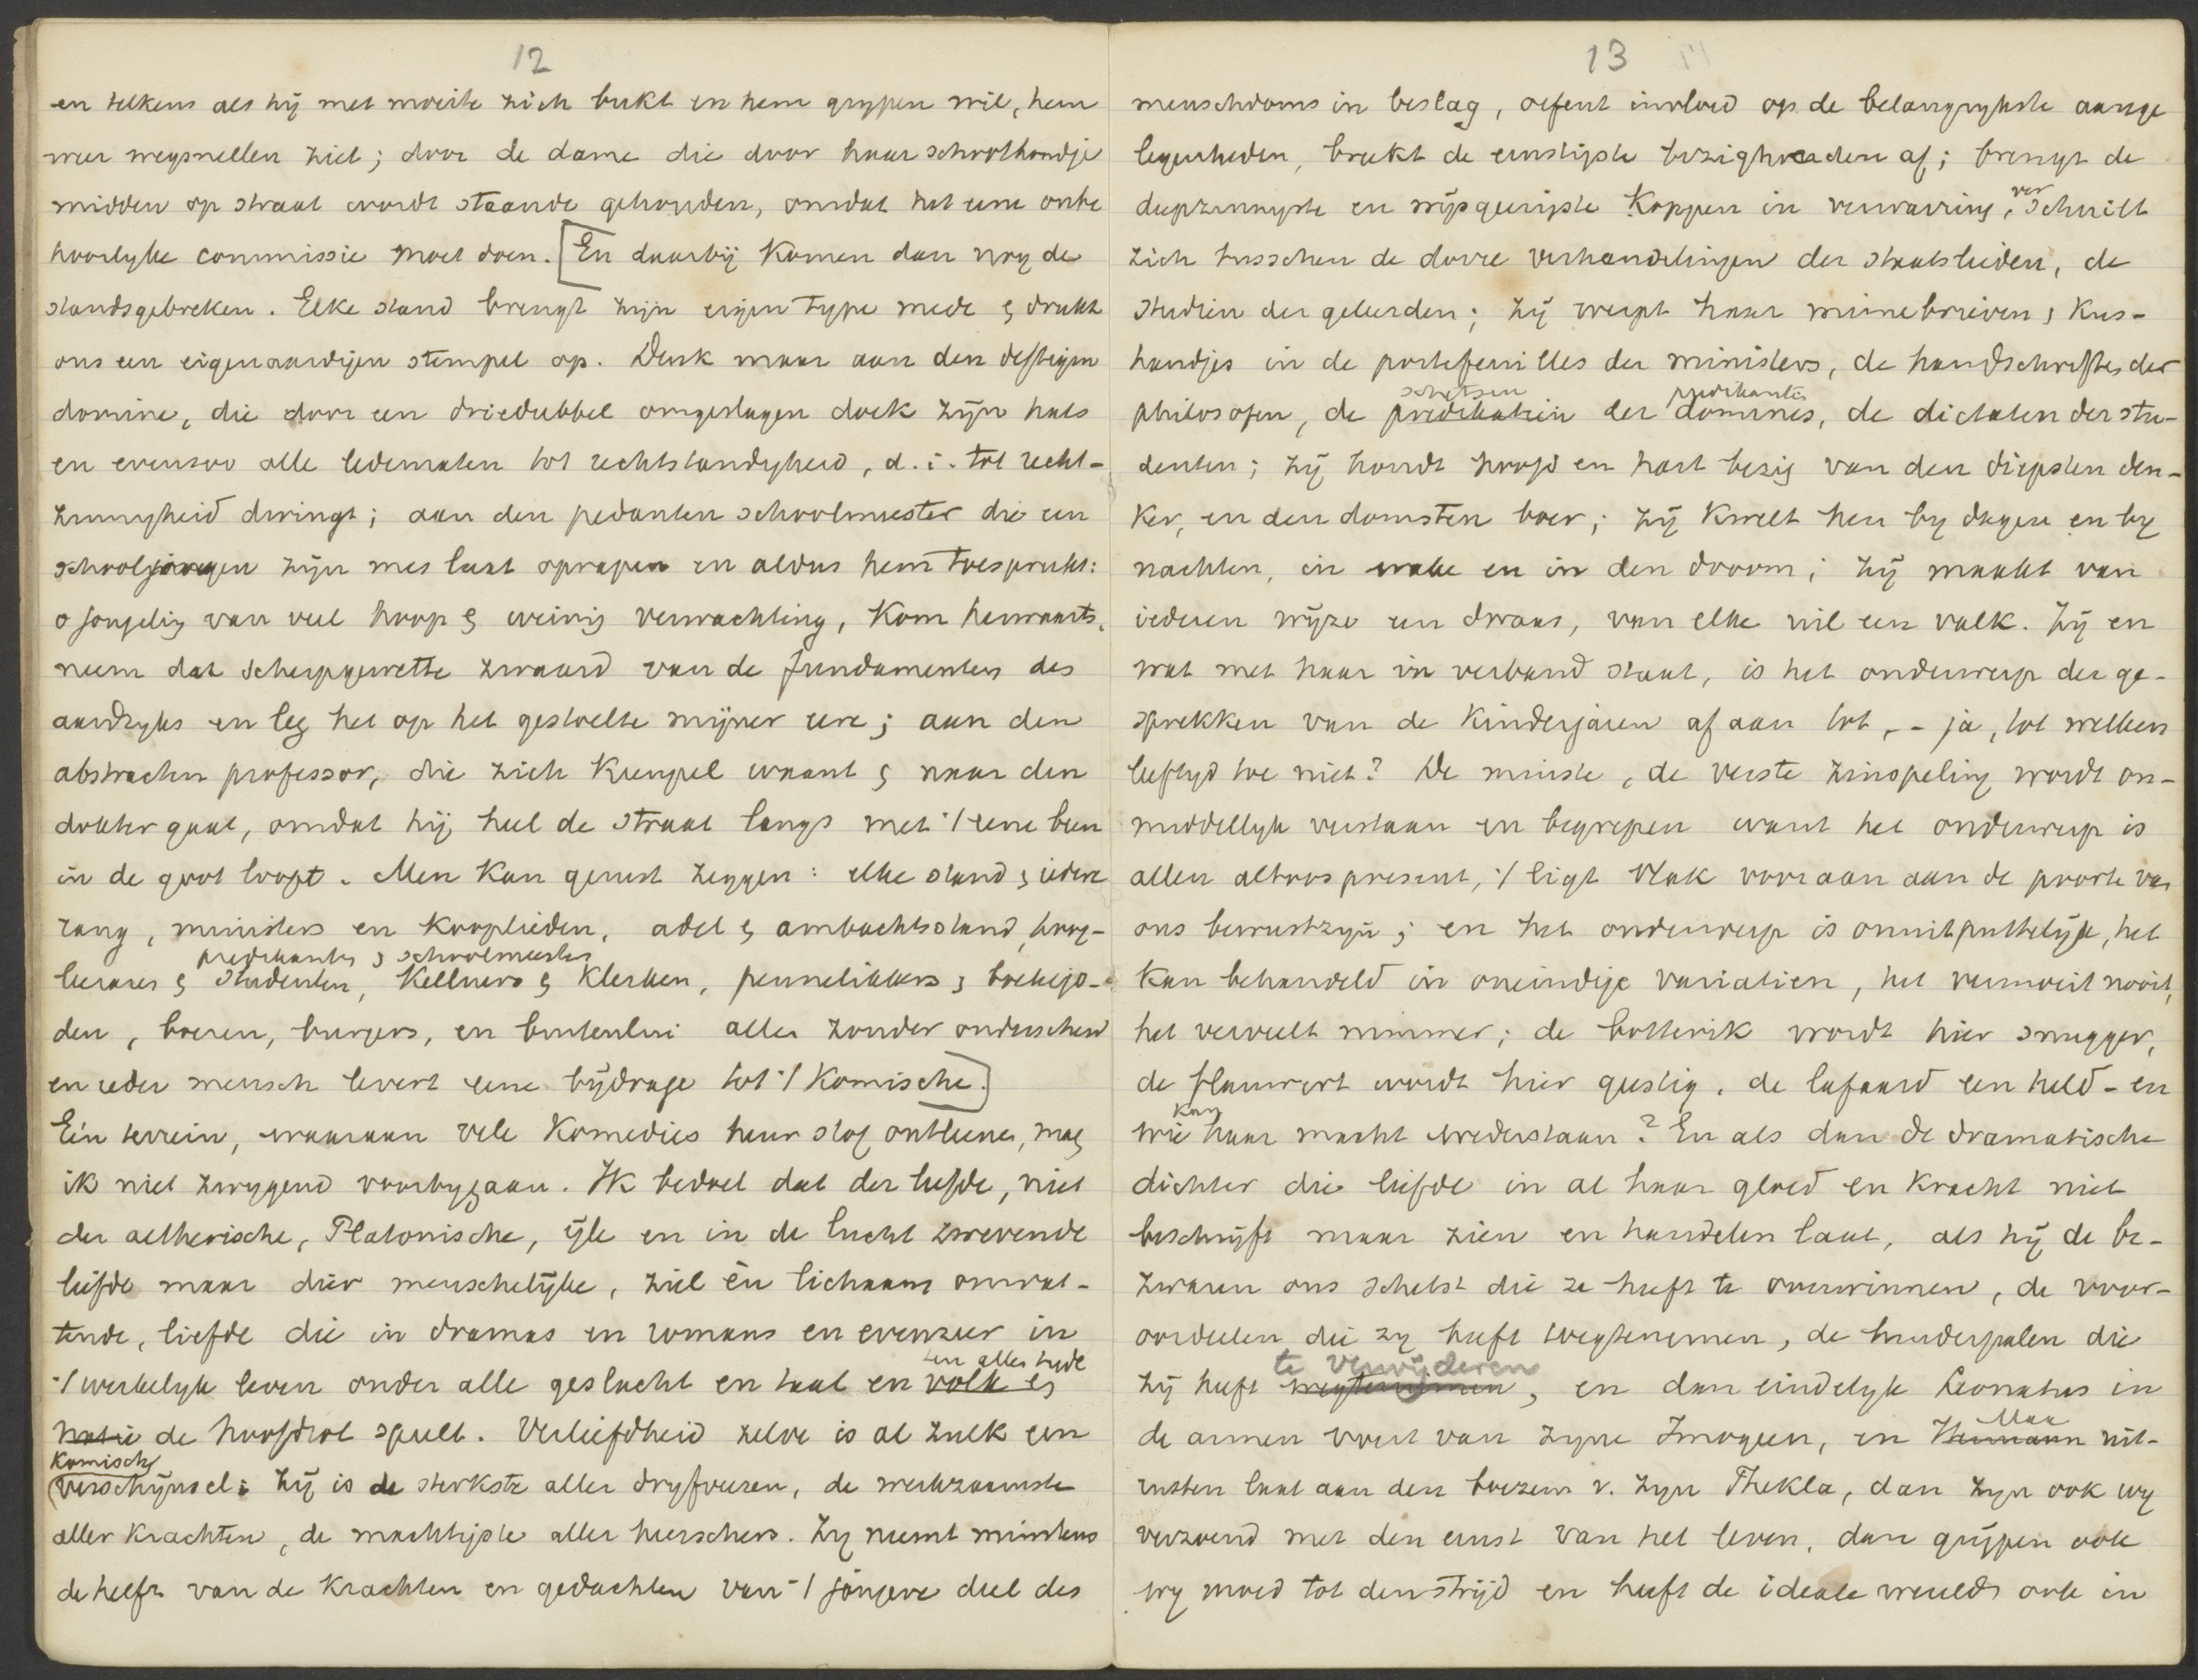 12
en telkens als hij met moeite zich bukt en hem grypen wil, hem
weer wegsnellen ziet; door de dame die door haar schoothondje
midden op straat wordt staande gehouden, omdat het eene onbe
hoorlyke commissie moet doen. [En daarbij komen dan nog de
standsgebreken. Elke stand brengt zijn eigen type mede & drukt
ons een eigenaardigen stempel op. Denk maar aan den deftigen
domine, die door een driedubbel omgeslagen doek zijn hals
en evenzoo alle ledematen tot rechtstandigheid, d.i. tot recht-
zinnigheid dwingt; aan den pedanten schoolmeester die een
schooljongen zijn mes laat oprapen en aldus hem toespreekt:
o jongeling van veel hoop & weinig verwachting, kom herwaarts,
neem dat scherpgewette zwaard van de fundamenten des
aardryks en leg het op het gestoelte mijner eere; aan den
abstracten professor, die zich kreupel waant & naar den
dokter gaat, omdat hij heel de straat langs met 't eene been
in de goot loopt. Men kan gerust zeggen: elke stand & iedere
rang, ministers en kooplieden, adel & ambachtsstand, hoog-
predikanten & schoolmeesters
leeraars & studenten, kellners & klerken, pennelikkers & boekejo-
den, boeren, burgers, en buitenlui alles zonder onderscheid
en ieder mensch levert eene bijdrage tot 't komische.]
Eén terrein, waaraan vele komedies haar stof ontleenen, mag
ik niet zwygend voorbygaan. Ik bedoel dat der liefde, niet
der aetherische, Platonische, ijle en in de lucht zwevende
liefde maar dier menschelijke, ziel èn lichaam omvat-
tende, liefde die in dramas en romans en evenzeer in
ten allen tyde
't werkelyk leven onder alle geslacht en taal en volk &
natie de hoofdrol speelt. Verliefdheid zelve is al zulk een
komisch
verschijnsel: Zij is de sterkste aller dryfveeren, de werkzaamste
aller krachten, de machtigste aller heerschers. Zy neemt minstens
de helft van de krachten en gedachten van 't jongere deel des
13
menschdoms in beslag, oefent invloed op de belangrykste aange
legenheden, breekt de ernstigste bezigheden af; brengt de
diepzinnigste en wijsgeerigste koppen in verwarring, verschuilt
zich tusschen de dorre verhandelingen der staatslieden, de
studien der geleerden; zij werpt haar minnebrieven & kus-
handjes in de portefeuilles der ministers, de handschriften der
schetsen predikanten
philosofen, de predikatien der dominees, de dictaten der stu-
denten; zij houdt hoofd en hart bezig van den diepsten den-
ker, en den domsten boer; zij kwelt hen by dagen en by
nachten, in wake en in den droom; zij maakt van
iederen wijze een dwaas, van elke uil een valk. Zij en
wat met haar in verband staat, is het onderwerp der ge-
sprekken van de kinderjaren af aan tot, - ja, tot welken
leeftyd toe niet? De minste, de verste zinspeling wordt on-
middellyk verstaan en begrepen want het onderwerp is
allen altoos present, 't ligt vlak vooraan aan de poorte van
ons bewustzijn; en het onderwerp is onuitputtelijk, het
kan behandeld in oneindige variatien, het vermoeit nooit,
het verveelt nimmer; de botterik wordt hier snugger,
de flauwert wordt hier geestig, de lafaard een held - en
kan
wie haar macht wederstaan? En als dan de dramatische
dichter die liefde in al haar gloed en kracht niet
beschrijft maar zien en handelen laat, als hij de be-
zwaren ons schetst die ze heeft te overwinnen, de voor-
oordeelen die zy heeft wegtenemen, de hinderpalen die
te verwijderen
zij heeft wegtenemen, en dan eindelyk Leonatus in
Max
de armen voert van zyne Imogeen, en Hermann uit-
rusten laat aan den boezem v. zyn Thekla, dan zyn ook wy
verzoend met den ernst van het leven, dan grijpen ook
wy moed tot den strijd en heeft de ideale wereld ook in